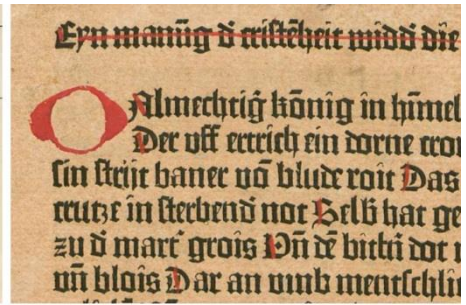 Eyn manūg d̄ cristēheit widd̄ die
O Almechtiḡ kōnig in hīmel
Der uff ertrich ein dorne cron
sin strijt baner vō blude roit Das
crutze in sterbend̄ not Selb̄ hat ge
zu d̄ mart̄ grois Vn̄ dē bittn̄ dot
vn̄ blois Dar an vmb mentschli